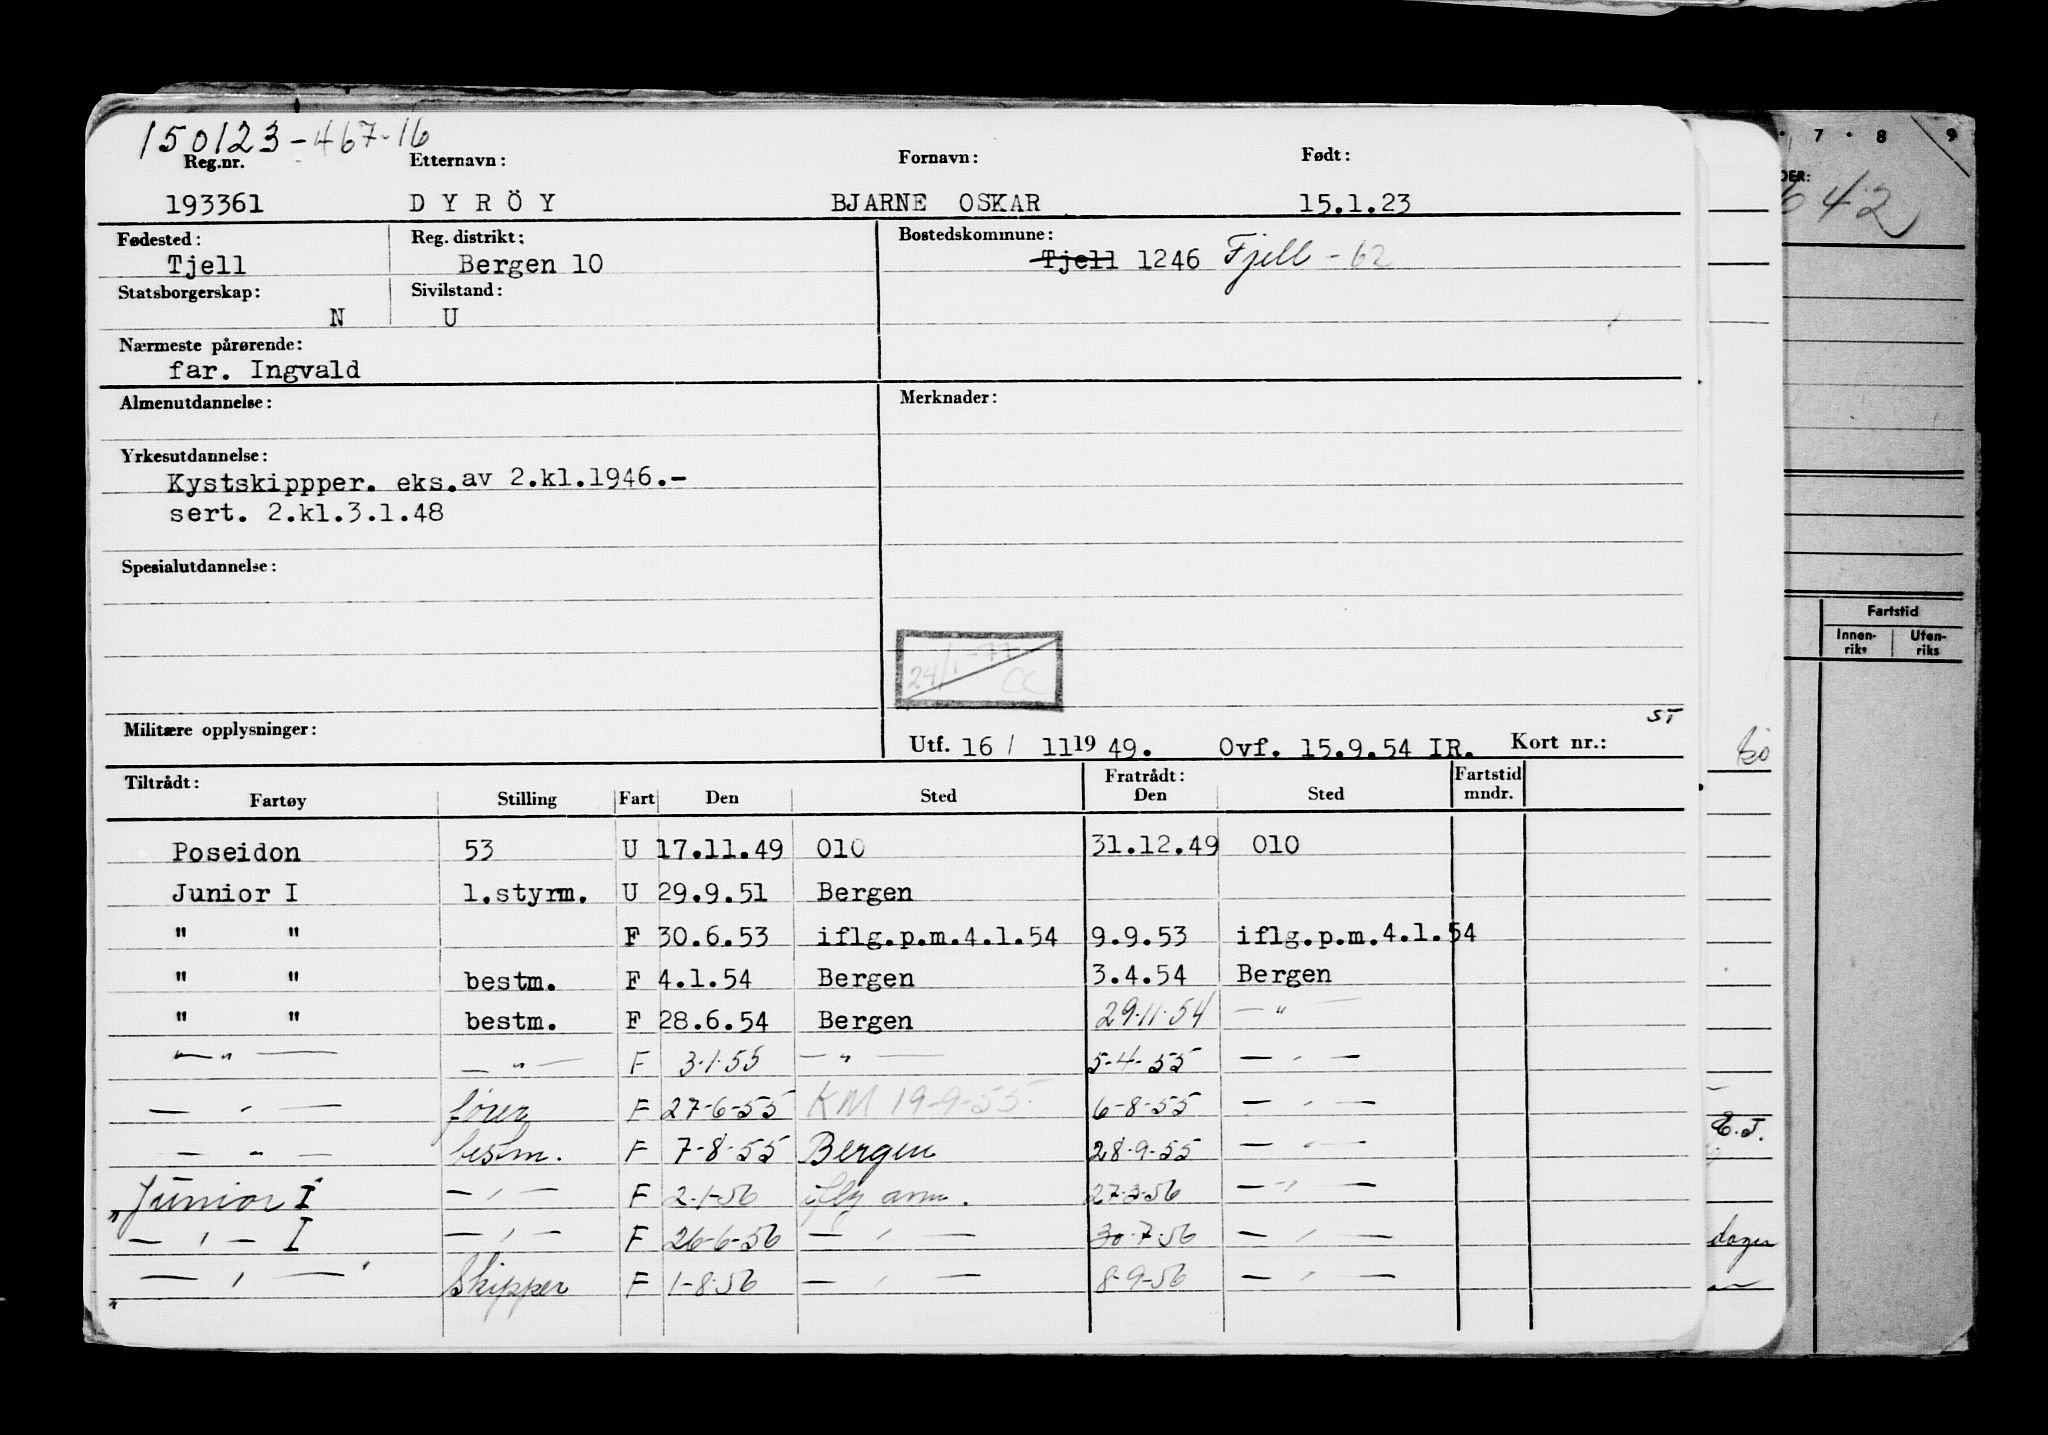 150123-467-16
Reg.nr. Etternavn: Fornavn: Født:
193361 D Y R Ö Y BJARNE OSKAR 15.1.23
Fødested: Reg. distrikt: Bostedskommune:
Tjell Bergen 10 Tjell 1246 Fjell -62
Statsborgerskap: Sivilstand:
N U
Nærmeste pårørende:
far. Ingvald
Almenutdannelse: Merknader:
Yrkesutdannelse:
Kystskippper. eks.av 2.kl.1946.-
sert. 2.kl.3.1.48
Spesialutdannelse:
24/1-77 CC
ST
Militære opplysninger: Utf. 16 / 11 19 49. Ovf. 15.9.54 IR. Kort nr.:
Tiltrådt: Fratrådt: Fartstid
Fartøy Stilling Fart Den Sted Den Sted mndr.
Poseidon 53 U 17.11.49 010 31.12.49 010
Junior I 1.styrm. U 29.9.51 Bergen
" " F 30.6.53 iflg.p.m.4.1.54 9.9.53 iflg.p.m.4.1.54
" " bestm. F 4.1.54 Bergen 3.4.54 Bergen
" " bestm. F 28.6.54 Bergen 29.11.54 — " —
— " — — " — F 3.1.55 — " — 5-4-55 — " —
— " — fører F 27-6-55 KM 19-9-55. 6-8-55 — " —
— " — bestm. F 7-8-55 Bergen 28-9-55 — " —
" Junior I — " — F 2-1-56 iflg anm. 27-3-56 — " —
— " — I — " — F 26-6-56 — " — 30.7.56 — " —
" — " — Skipper F 1-8-56 — " — 8-9-56 — " —
7 · 8 9
DER:
642
Fartstid
Innen-
riks
Uten-
riks
E.J.
dager